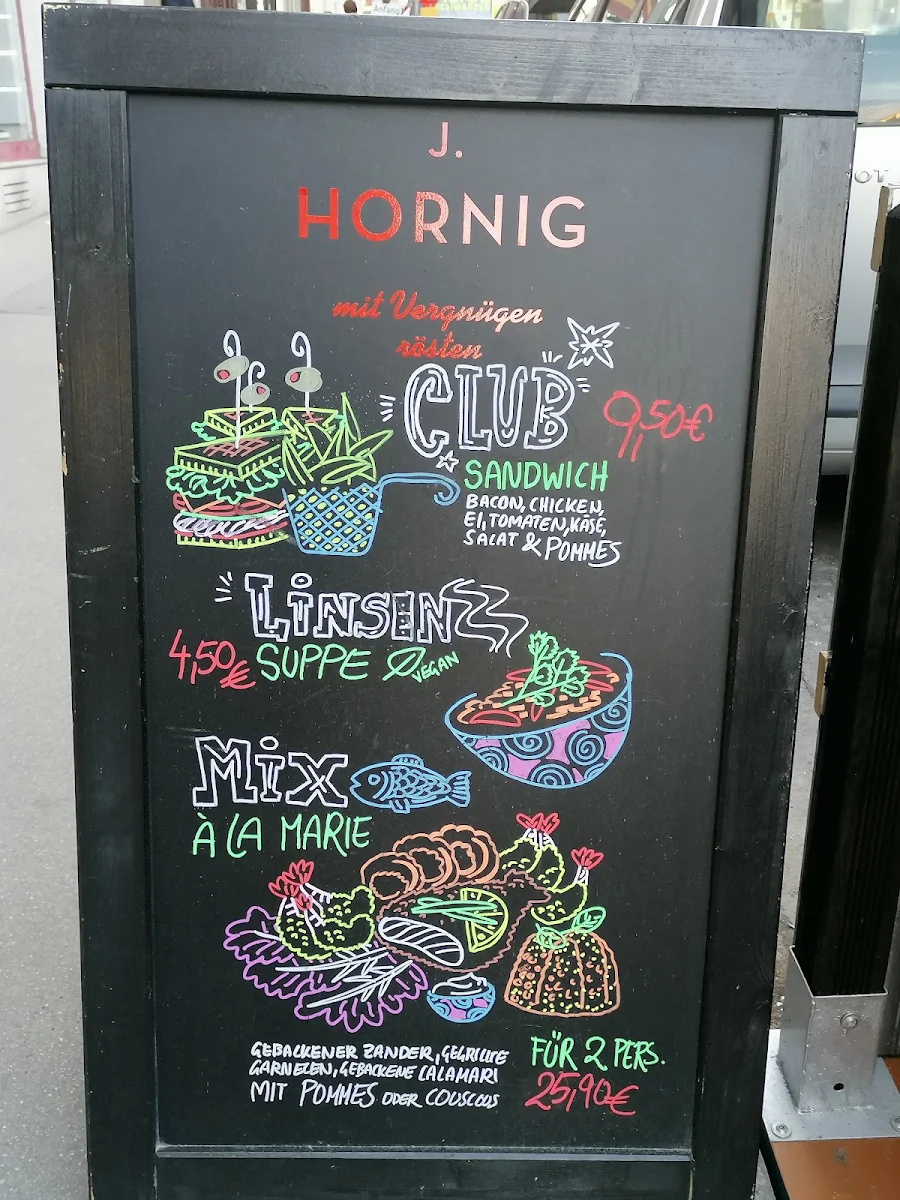 J.
HORNIG
mit Vergnügen
rösten
CLUB
9,50€
SANDWICH
BACON, CHICKEN,
EI, TOMATEN, KÄSE,
SALAT & POMMES
LINSEN
4,50€ SUPPE VEGAN
MIX
À LA MARIE
GEBACKENER ZANDER, GEGRILLTE
GARNELEN, GEBACKENE CALAMARI
MIT POMMES ODER COUSCOUS
FÜR 2 PERS.
25,90€